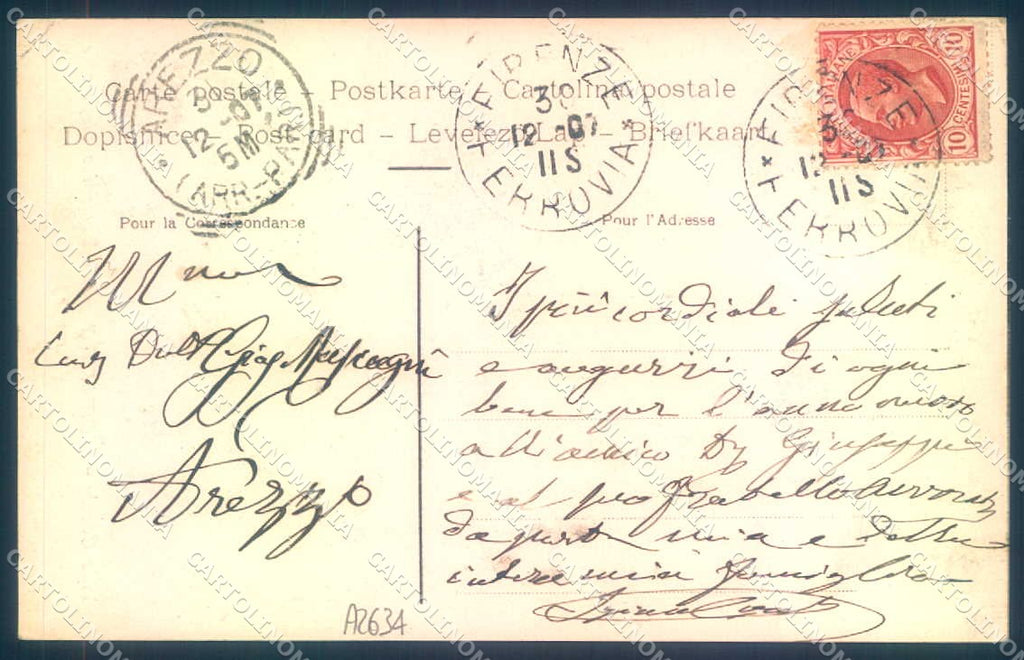 Carte postale - Postkarte - Cartolina postale
Dopisnice - Post card - Levelező-Lap - Briefkaart
AREZZO
12 07
5M
(ARR-PAR)
FIRENZE
30
12 07
11S
* FERROVIA *
FIRENZE
12 07
11S
* FERROVIA
CENTESIMI
10
10
Pour la Correspondance
Pour l'Adresse
Mascagni
Arezzo
I più cordiali saluti
e augurri di ogni
bene per l'anno nuovo
all'amico Giuseppe
e al fratello
da parte mia e della
intera mia famiglia
A2634
CARTOLINOMANIA